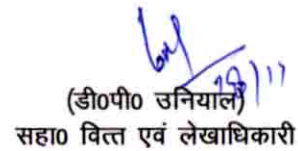 28/11
(डी0पी0 उनियाल)
सहा0 वित्त एवं लेखाधिकारी